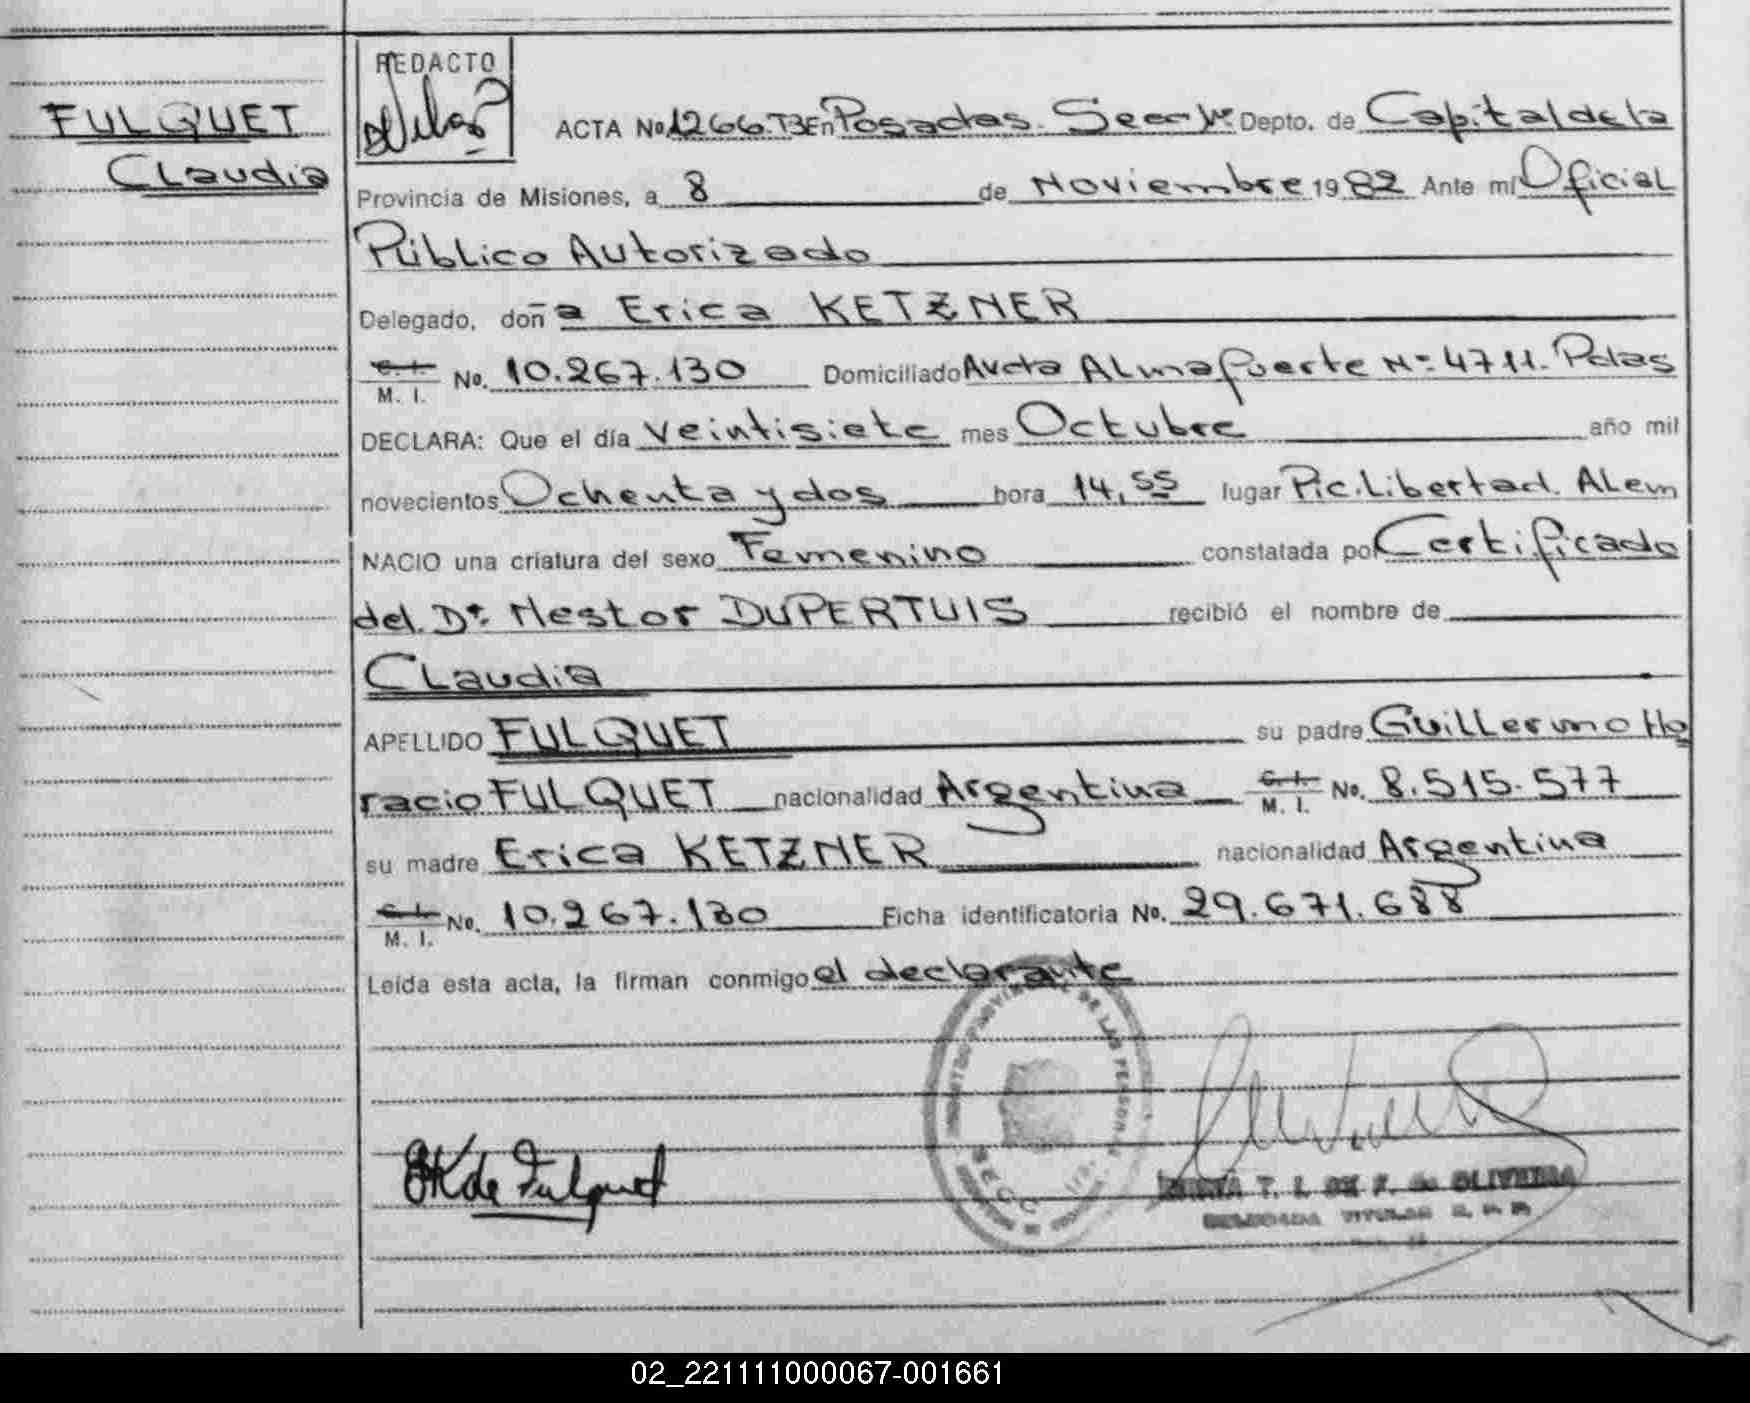 REDACTO
FULQUET
Claudia
ACTA No 1266. T3 En Posadas. Secc 1ra Depto. de Capital de la
Provincia de Misiones, a 8 de Noviembre 1982 Ante mí Oficial
Público Autorizado
Delegado, doña Erica KETZNER
C. I. / M. I. No. 10.267.130 Domiciliado Avda Almafuerte Nº 4711. Pdas
DECLARA: Que el día veintisiete mes Octubre año mil
novecientos Ochenta y dos hora 14,55 lugar Pic. Libertad. Alem
NACIO una criatura del sexo Femenino constatada por Certificado
del Dr. Nestor DUPERTUIS recibió el nombre de
Claudia
APELLIDO FULQUET su padre Guillermo Ho
racio FULQUET nacionalidad Argentina C. I. / M. I. No. 8.515.577
su madre Erica KETZNER nacionalidad Argentina
C. I. / M. I. No. 10.267.130 Ficha identificatoria No. 29.671.688
Leída esta acta, la firman conmigo el declarante
EK de Fulquet
T. I. DE F. de OLIVEIRA
DELEGADA TITULAR R. P. P.
02_221111000067-001661